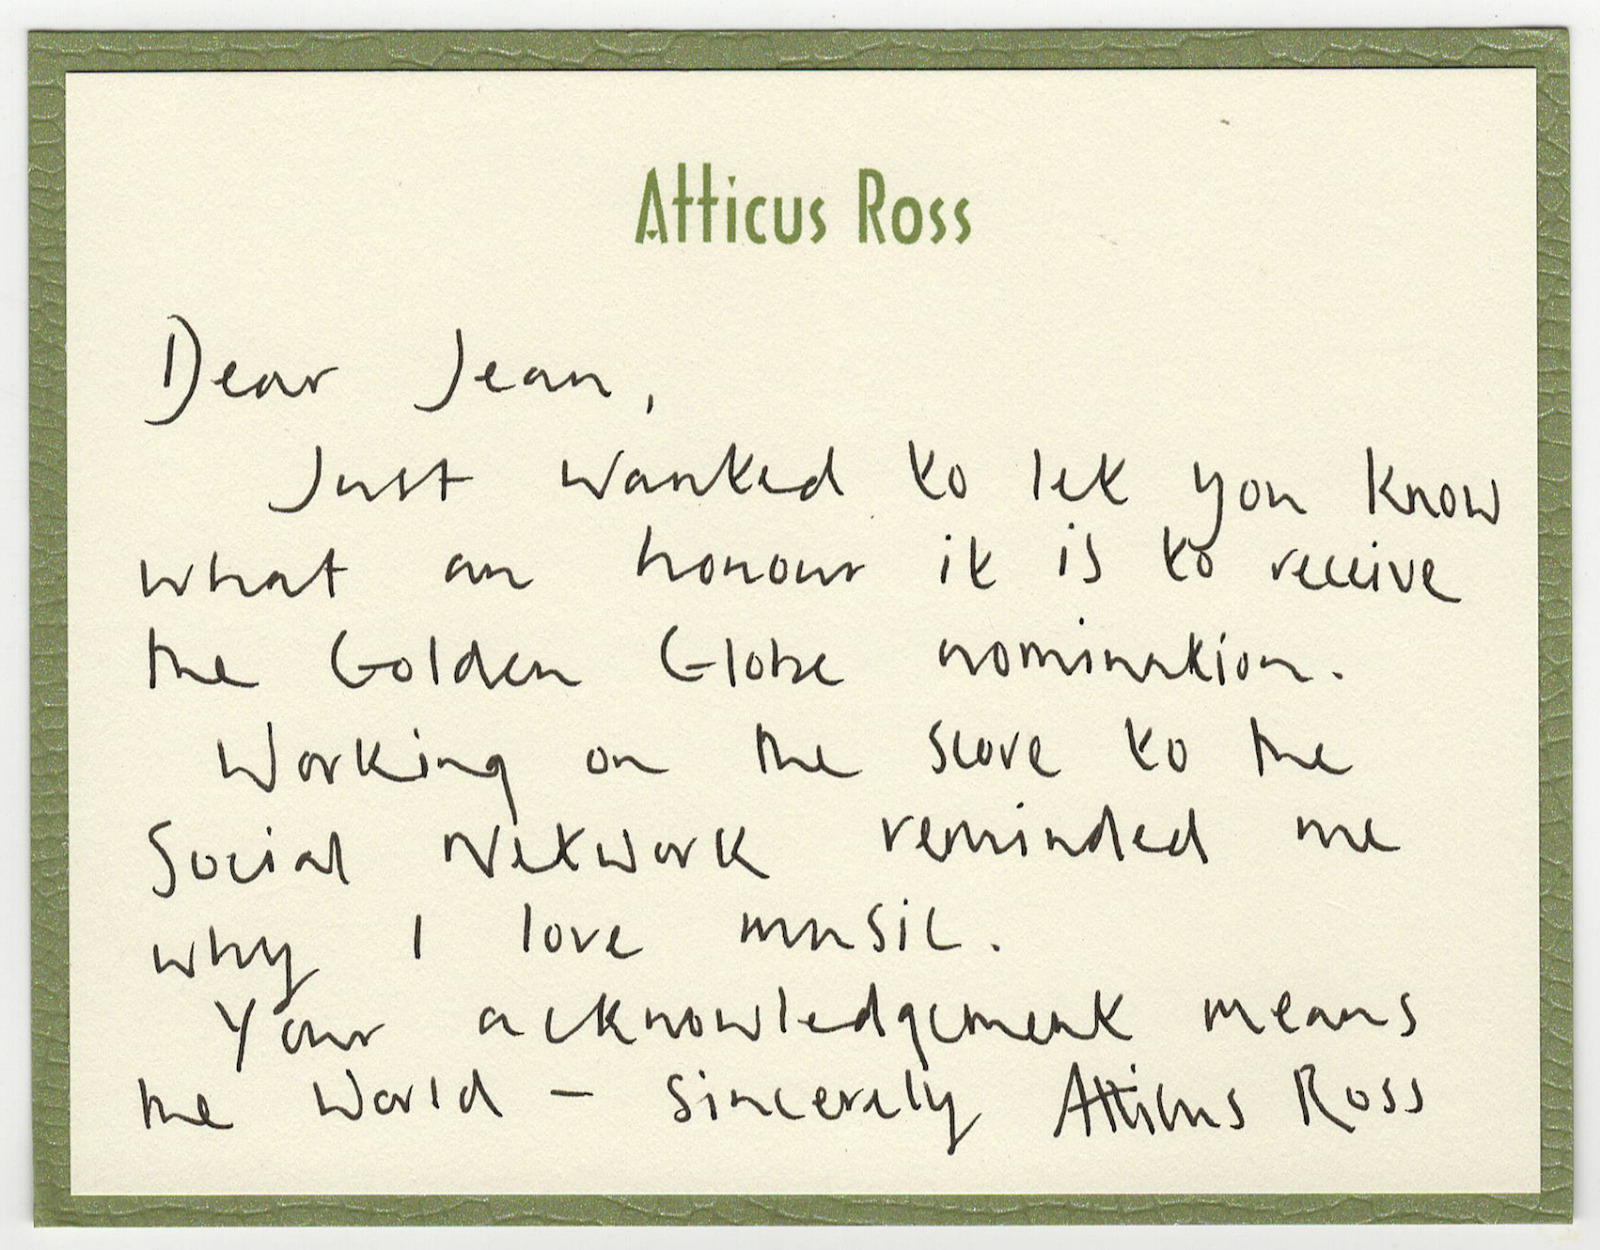 Atticus Ross
Dear Jean,
Just wanted to let you know
what an honour it is to receive
the Golden Globe nomination.
Working on the score to the
Social Network reminded me
why I love music.
Your acknowledgement means
the world – Sincerely Atticus Ross